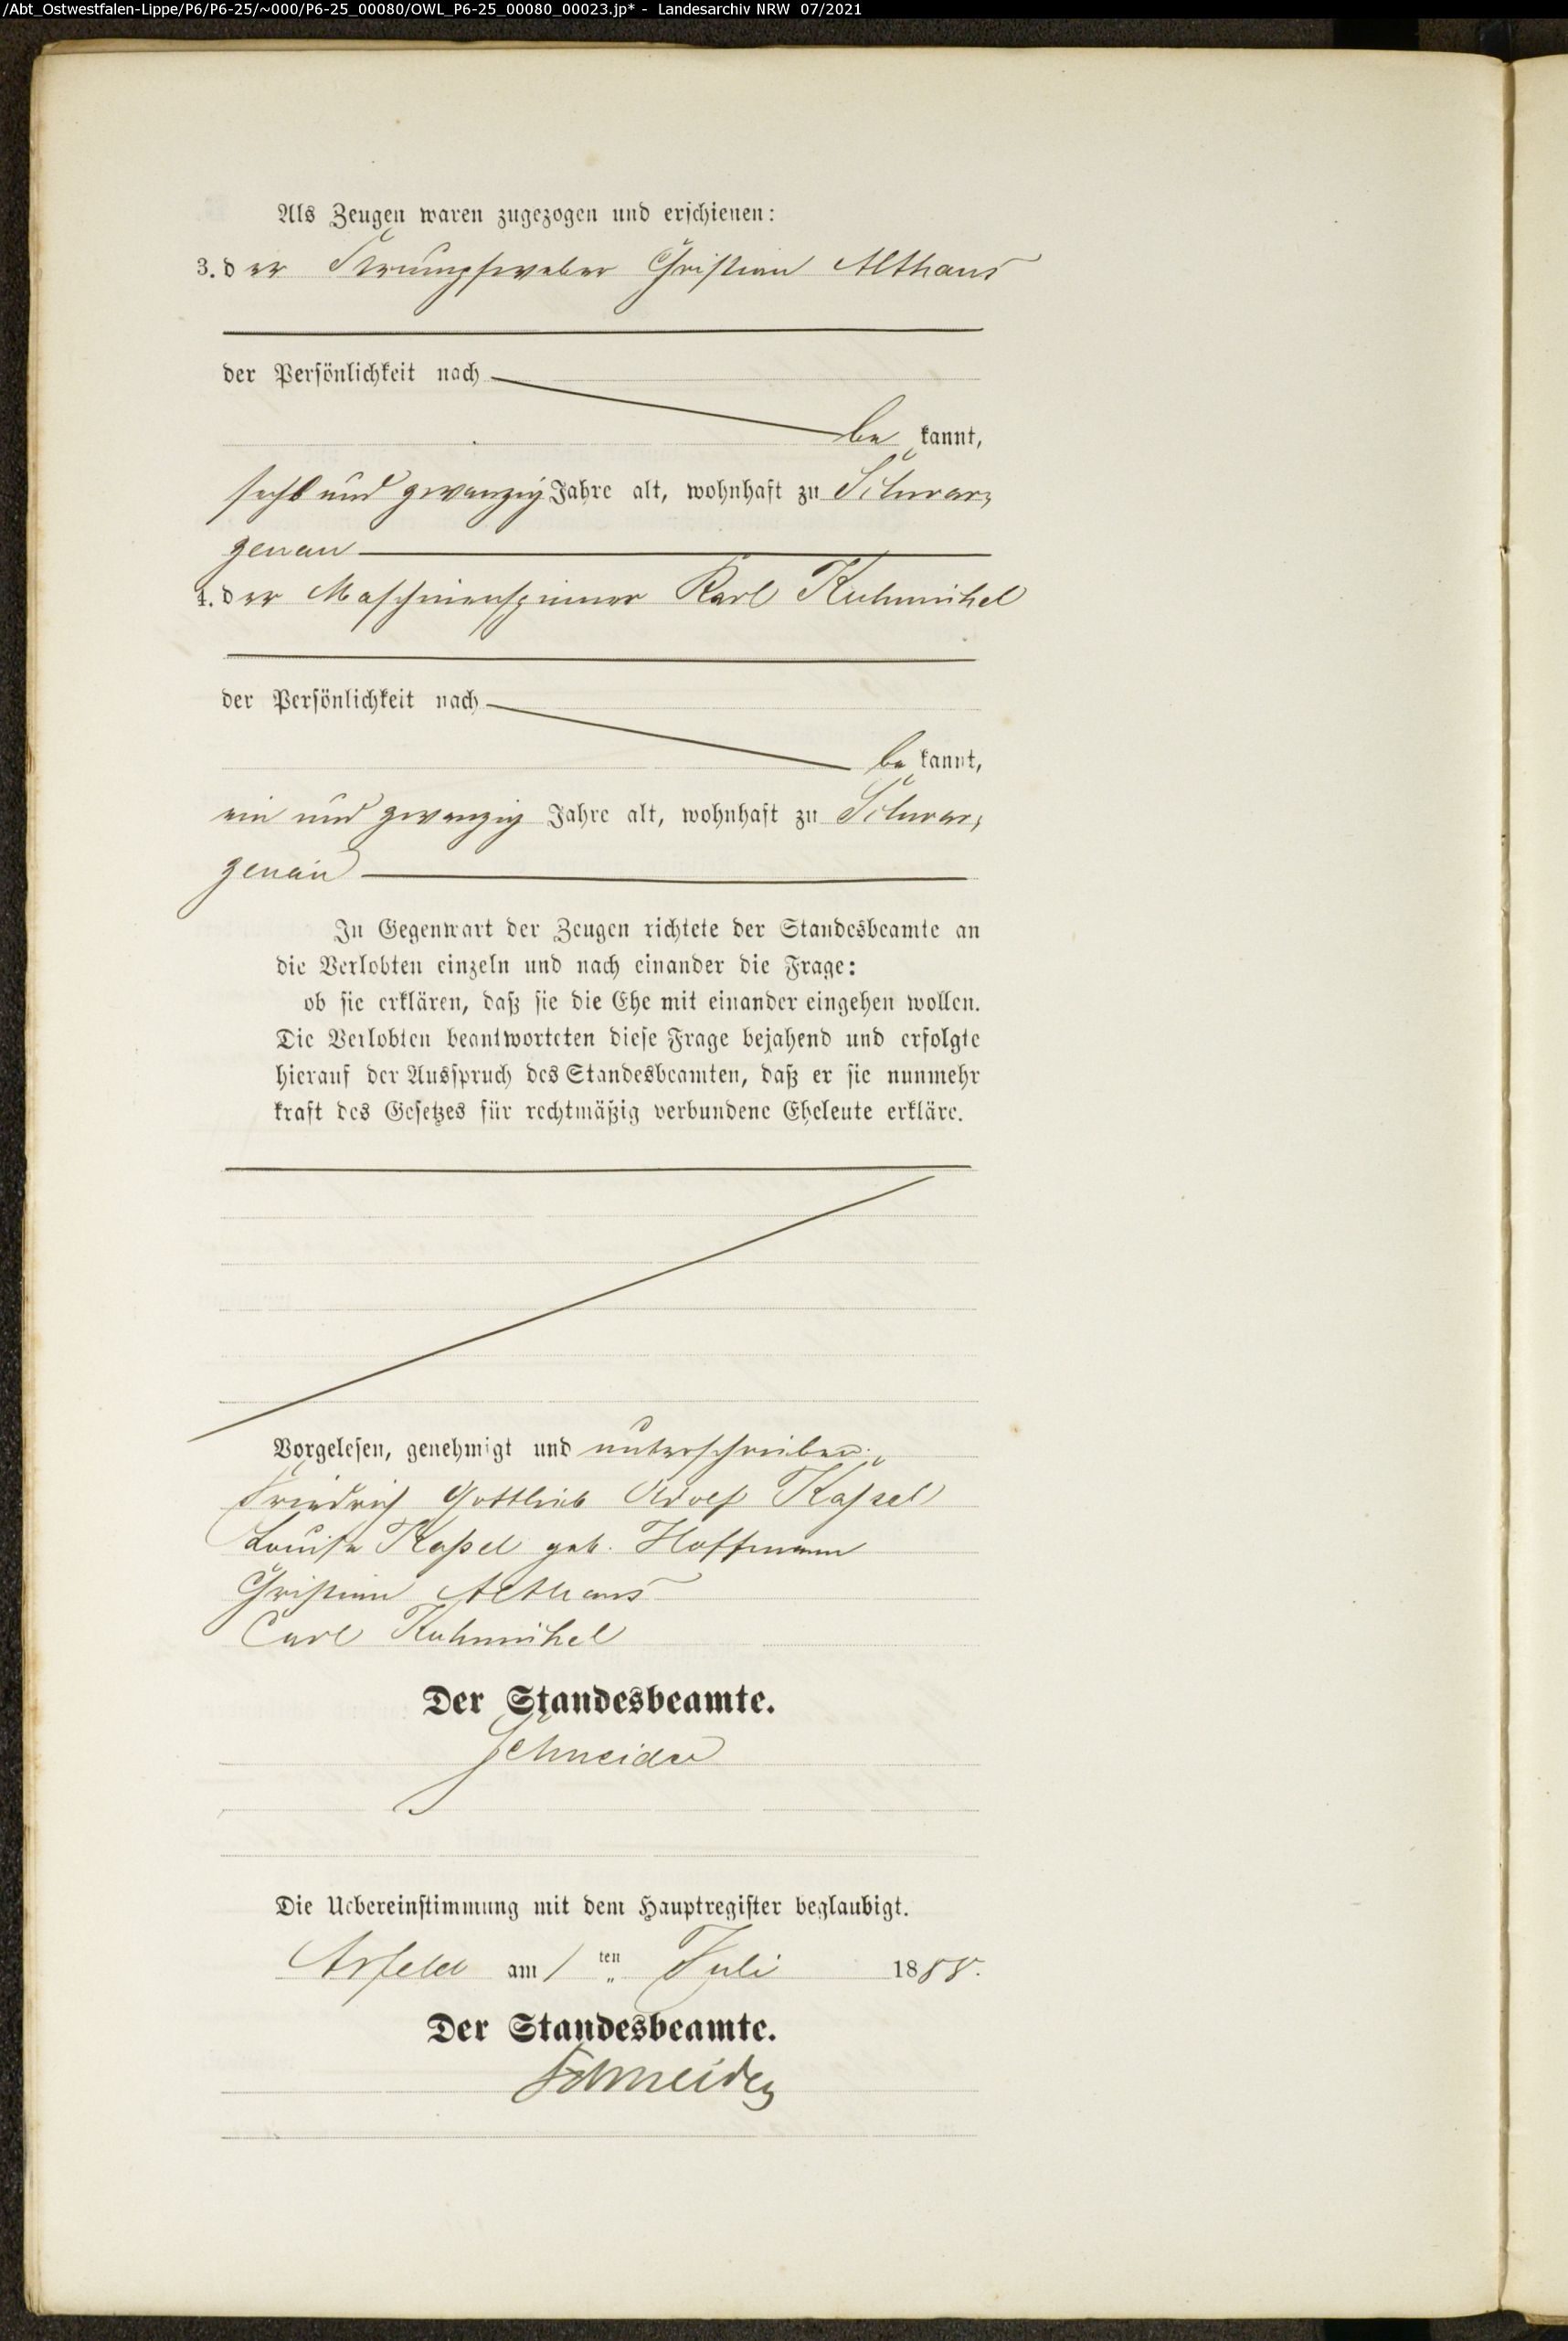 /Abt_Ostwestfalen-Lippe/P6/P6-25/~000/P6-25_00080/OWL_P6-25_00080_00023.jp* - Landesarchiv NRW 07/2021
Als Zeugen waren zugezogen und erschienen:
3. der Strumpfweber Christian Althaus
der Persönlichkeit nach
be kannt,
sechs und zwanzig Jahre alt, wohnhaft zu Schwar,
zenau
4. der Maschinenspinner Karl Kuhmichel
der Persönlichkeit nach
be kannt,
ein und zwanzig Jahre alt, wohnhaft zu Schwar,
zenau
In Gegenwart der Zeugen richtete der Standesbeamte an
die Verlobten einzeln und nach einander die Frage:
ob sie erklären, daß sie die Ehe mit einander eingehen wollen.
Die Verlobten beantworteten diese Frage bejahend und erfolgte
hierauf der Ausspruch des Standesbeamten, daß er sie nunmehr
kraft des Gesetzes für rechtmäßig verbundene Eheleute erkläre.
Vorgelesen, genehmigt und unterschrieben.
Friedrich Gottlieb Adolf Kassel
Louise Kassel geb. Hoffmann
Christian Althaus
Carl Kuhmichel
Der Standesbeamte.
Schneider
Die Uebereinstimmung mit dem Hauptregister beglaubigt.
Arfeld am 1 ten Juli 1888.
Der Standesbeamte.
Schneider